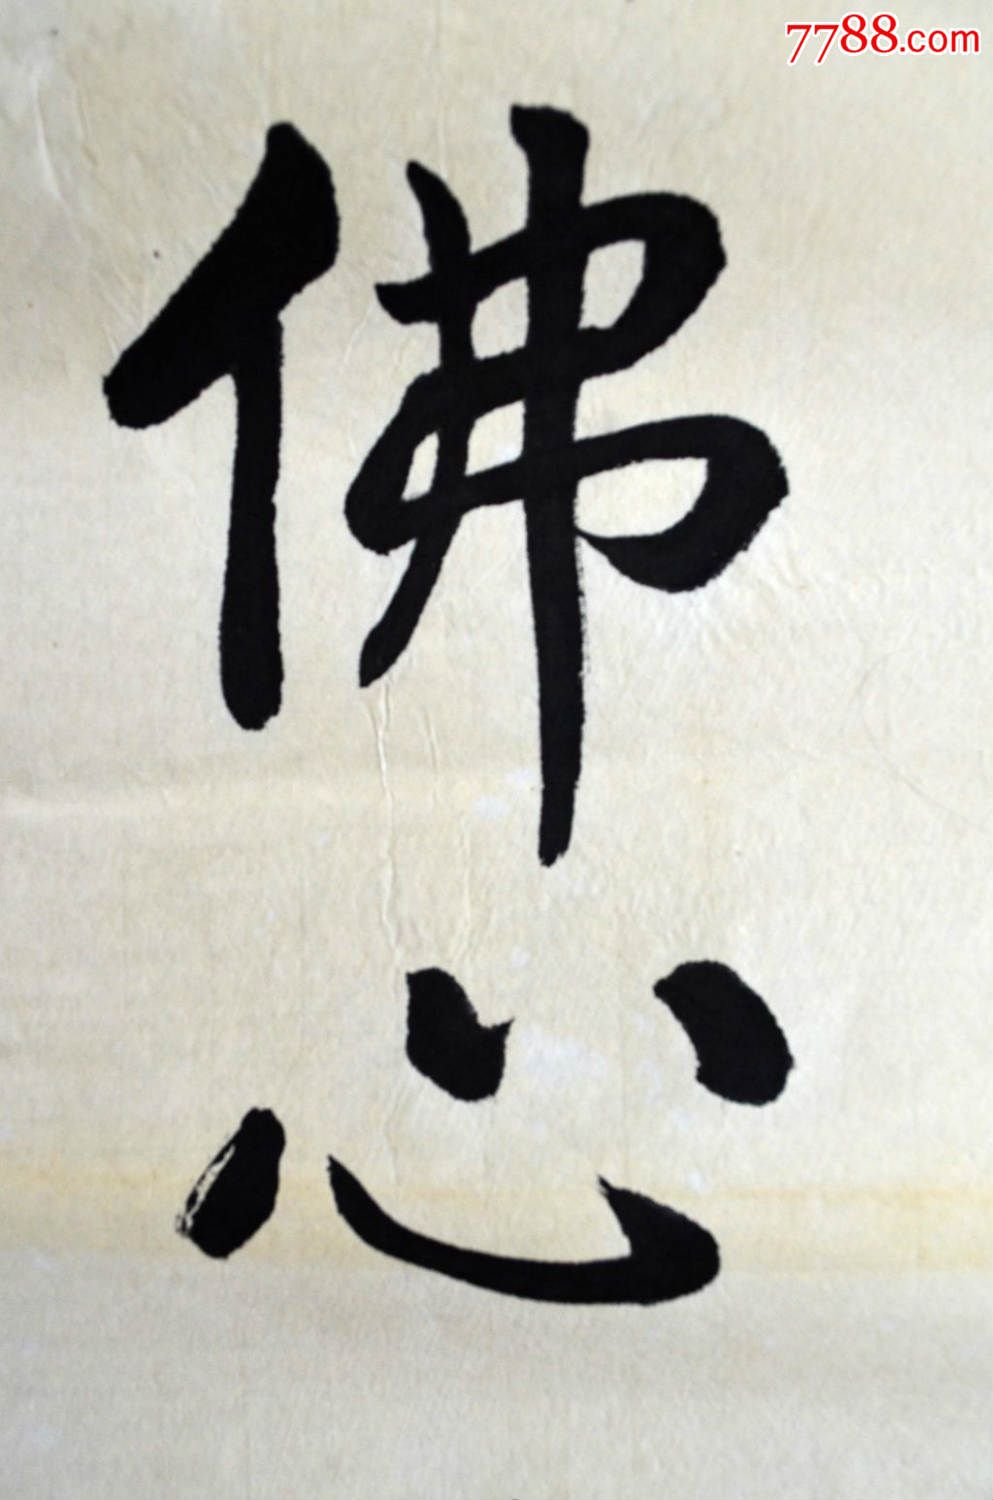 7788.com
佛
心